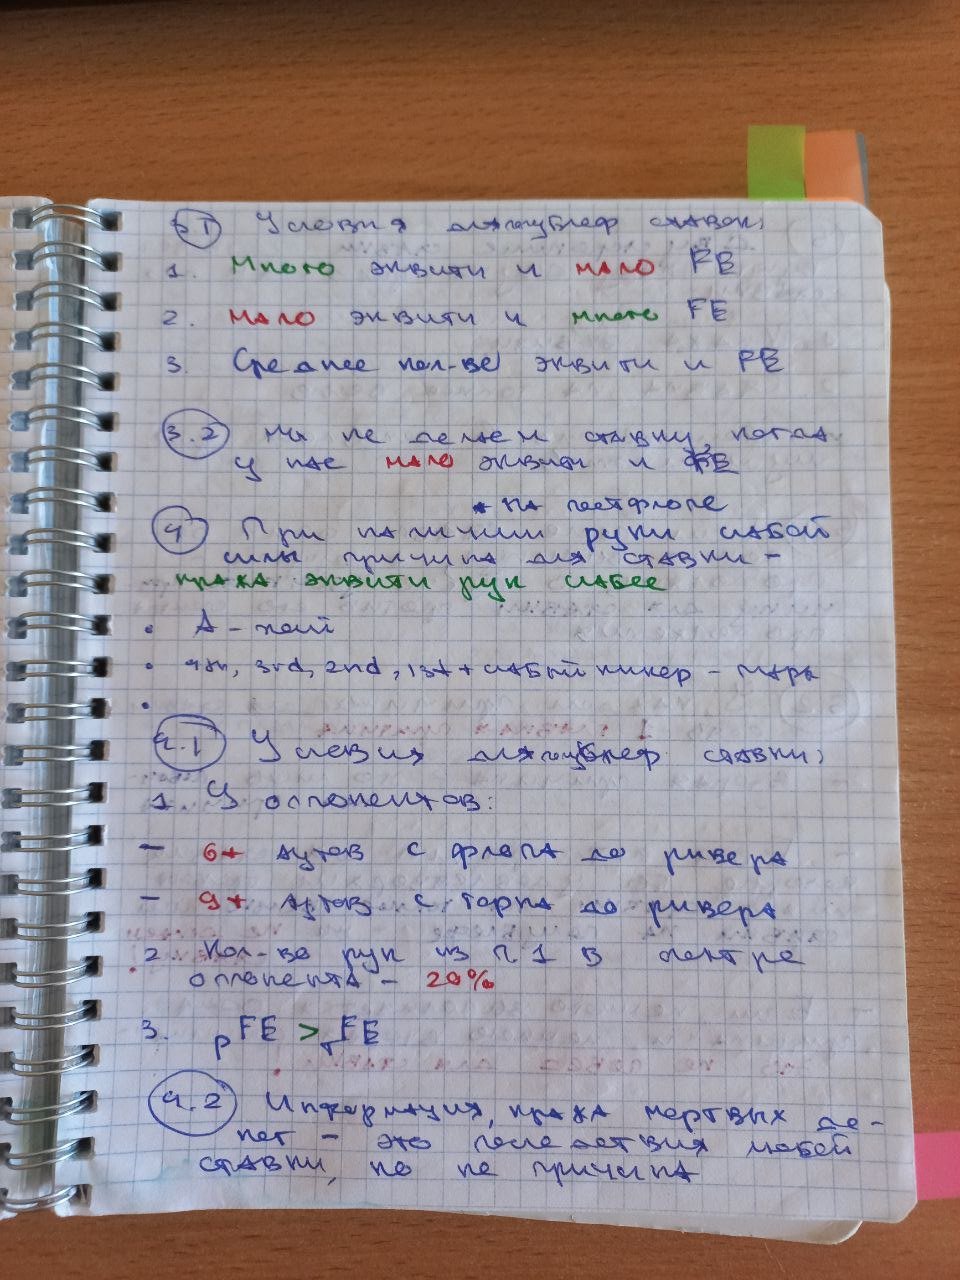 3.1 Условия для полублеф ставок:
1. Много эквити и мало FE
2. Мало эквити и много FE
3. Среднее кол-во эквити и FE
3.2 Мы не делаем ставку, когда
у нас мало эквити и FE
* на постфлопе
4 При наличии руки слабой
силы причина для ставки -
кража эквити рук слабее
• A-хай
• 4th, 3rd, 2nd, 1st + слабый кикер - пары
•
4.1 Условия для полублеф ставки:
1. У оппонентов:
- 6+ аутов с флопа до ривера
- 9+ аутов с терна до ривера
2. Кол-во рук из п 1 в спектре
оппонента - 20%
3. pFE > тFE
4.2 Информация, кража мертвых де-
нег - это последствия любой
ставки, но не причина